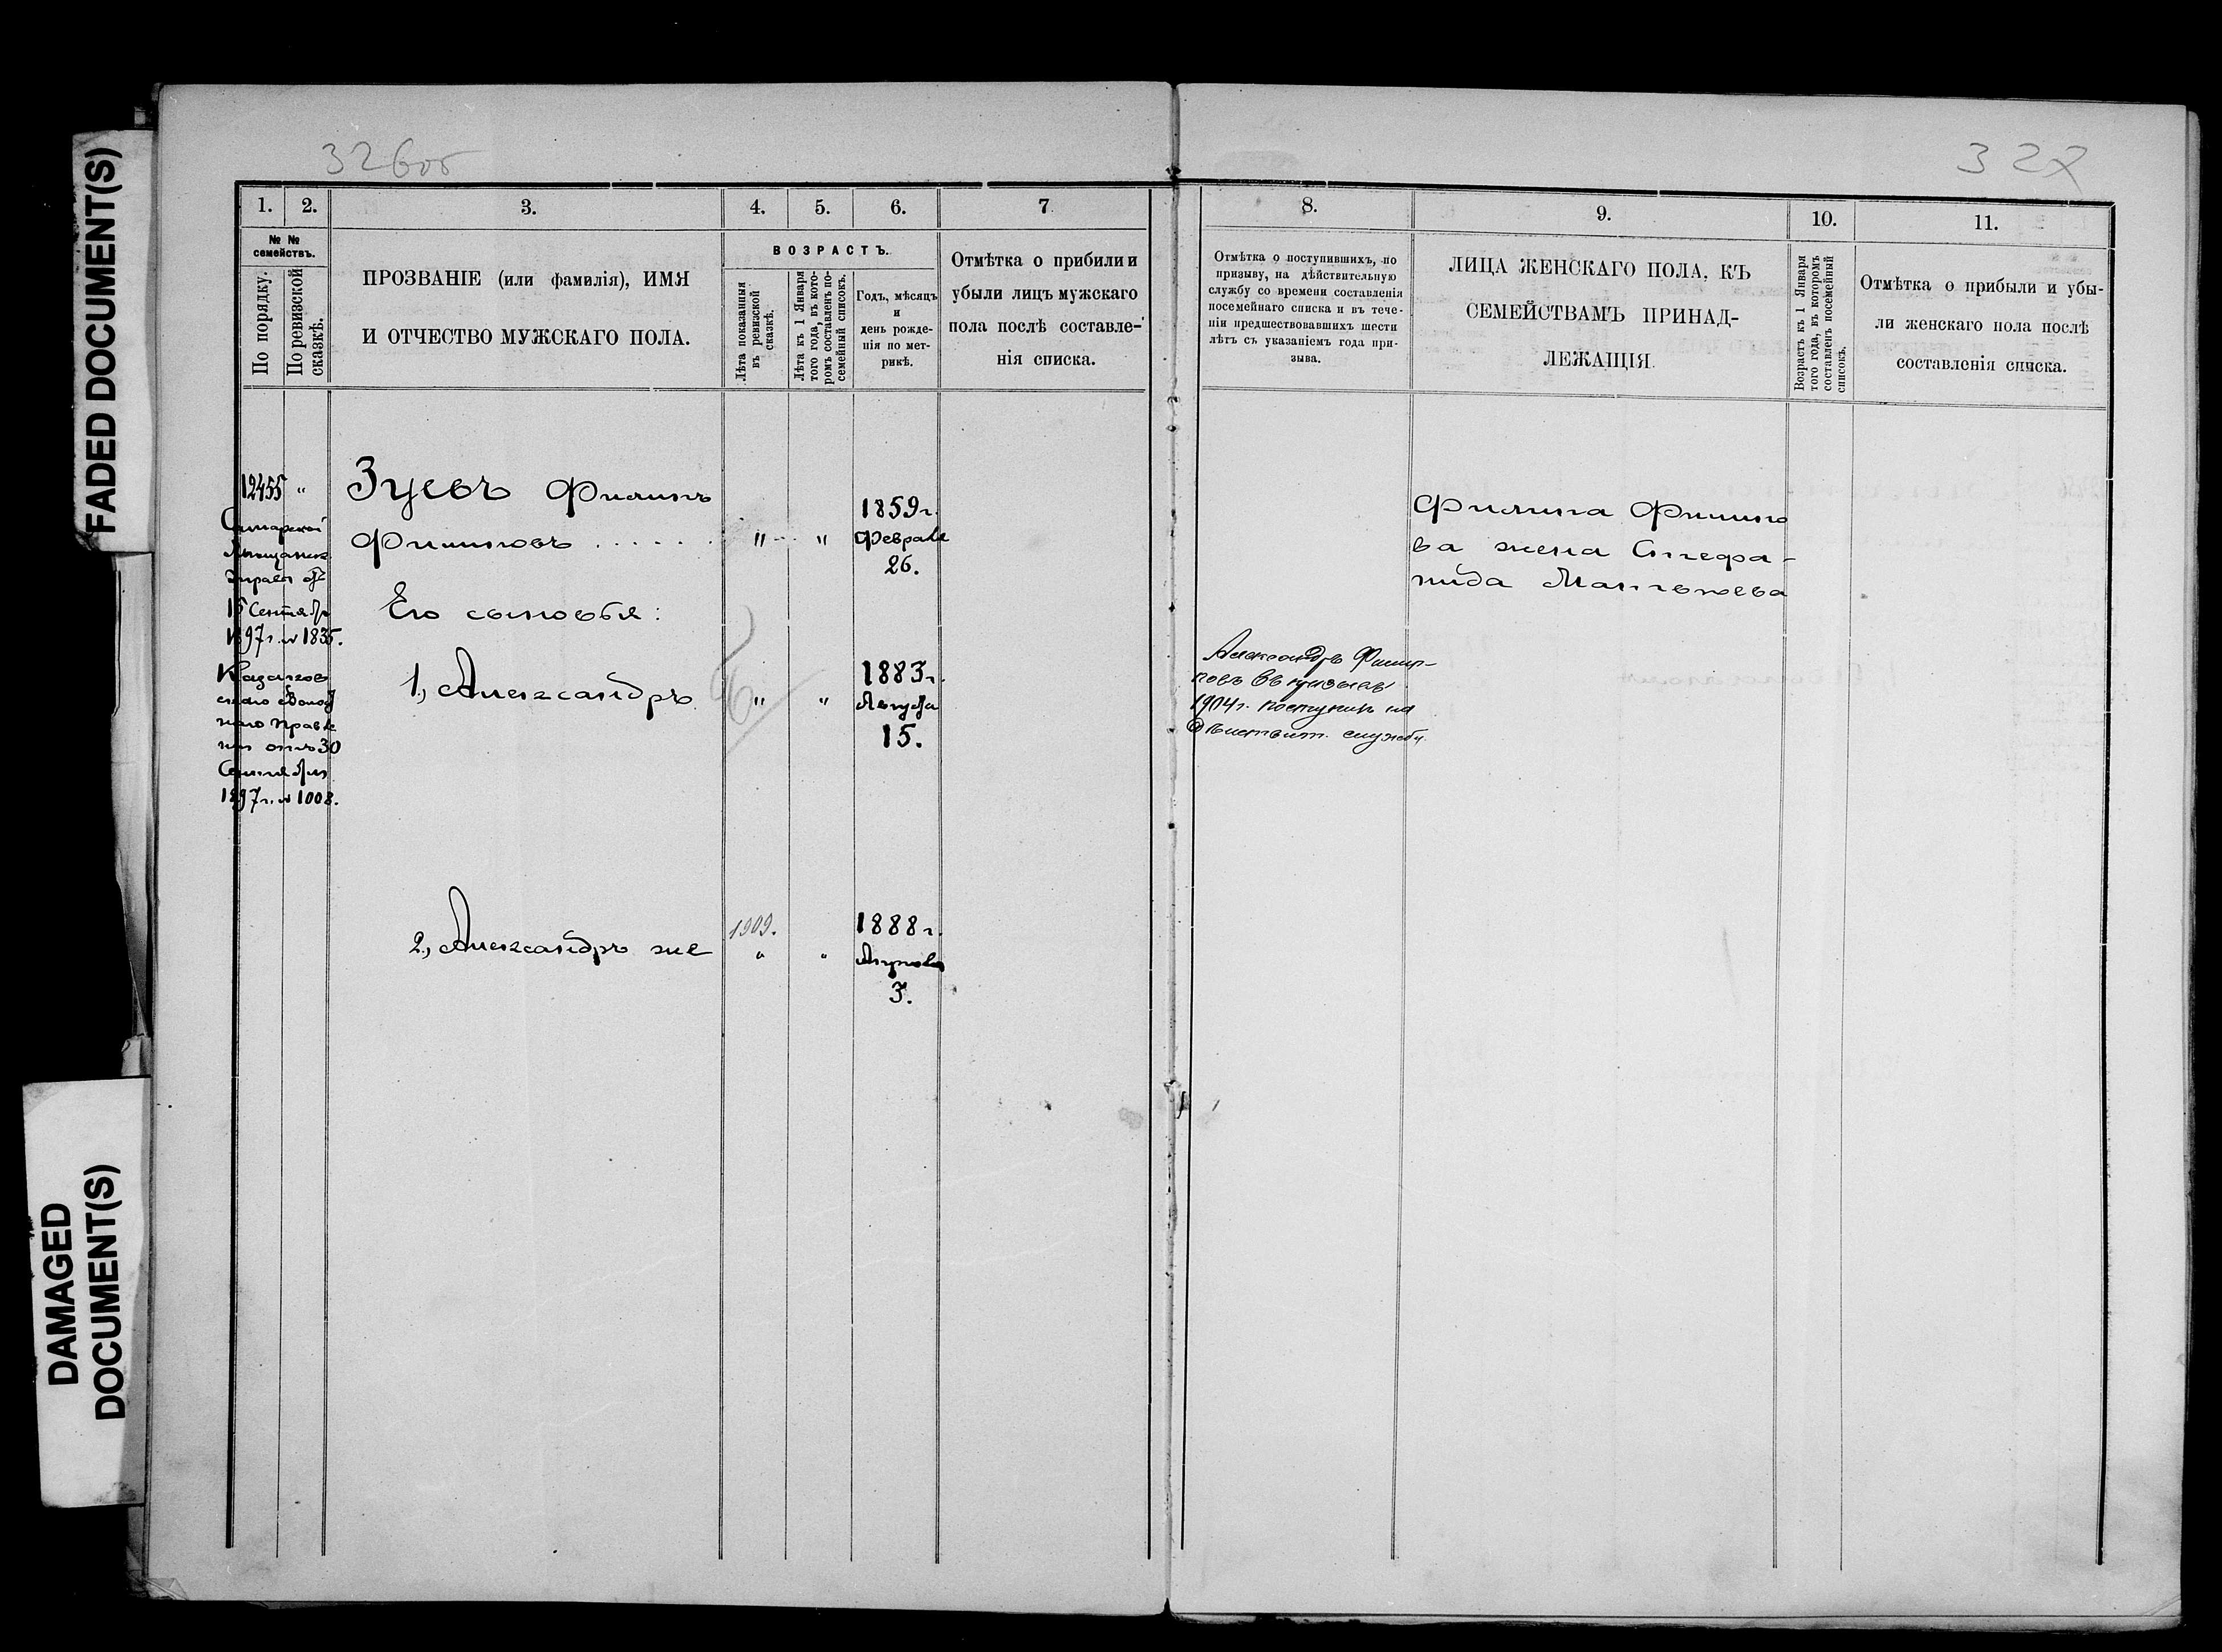 FADED DOCUMENT(S)
DAMAGED
DOCUMENT(S)
326об
1.
2.
3.
4.
5.
6.
7.
№ №
семействъ.
По порядку.
По ревизской
сказкѣ.
ПРОЗВАНІЕ (или фамилія), ИМЯ
И ОТЧЕСТВО МУЖСКАГО ПОЛА.
ВОЗРАСТЪ.
Лѣта показанныя
въ ревизской
сказкѣ.
Лѣта къ 1 Января
того года, въ кото-
ромъ составленъ по-
семейный списокъ.
Годъ, мѣсяцъ
и
день рожде-
нія по мет-
рикѣ.
Отмѣтка о прибыли и
убыли лицъ мужскаго
пола послѣ составле-
нія списка.
12455 "
Самарской
Мѣщанск.
Управы отъ
15 Сентября
1897 г. № 1835.
Казанков
скаго Волост
наго Правле
нія отъ 30
Сентября
1897 г. № 1008.
Зуевъ Филипъ
Филиповъ . . . . . . " " 
1859 г.
Февраля
26.
Его сыновья:
1, Александръ " "
1883 г.
Августа
15.
2, Александръ же
1909.
" "
1888 г.
3.
327
8.
9.
10.
11.
Отмѣтка о поступившихъ, по
призыву, на дѣйствительную
службу со времени составленія
посемейнаго списка и въ тече-
ніи предшествовавшихъ шести
лѣтъ съ указаніемъ года при-
зыва.
ЛИЦА ЖЕНСКАГО ПОЛА, КЪ
СЕМЕЙСТВАМЪ ПРИНАД-
ЛЕЖАЩІЯ.
Возрастъ къ 1 Января
того года, въ которомъ
составленъ посемейный
списокъ.
Отмѣтка о прибыли и убы-
ли женскаго пола послѣ
составленія списка.
Филипа Филипо
ва жена Стефа-
нида
Александръ Филип-
повъ въ призывъ
1904 г. поступилъ на
дѣйствит. службу.